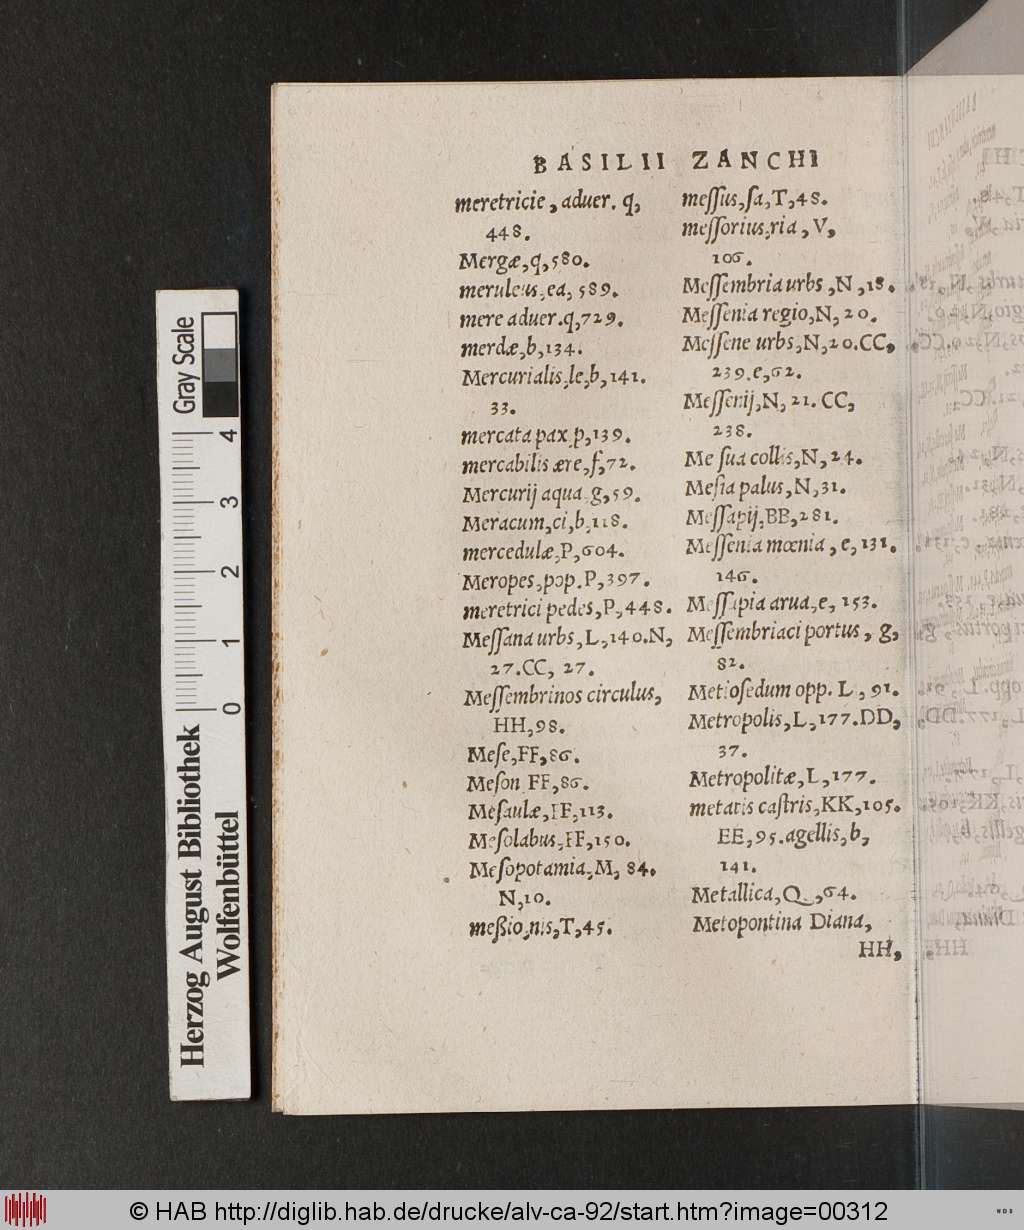 BASILII ZANCHI
meretricie, aduer. q,
448.
Mergæ, q, 580.
meruleus, ea, 589.
mere aduer. q, 729.
merdæ, b, 134.
Mercurialis, le, b, 141.
33.
mercata pax, p, 139.
mercabilis ære, f, 72.
Mercurij aqua, g, 59.
Meracum, ci, b, 118.
mercedulæ, P, 604.
Meropes, pop. P, 397.
meretrici pedes, P, 448.
Meſſana urbs, L, 140. N,
27. CC, 27.
Meſſembrinos circulus,
HH, 98.
Meſe, FF, 86.
Meſon FF, 86.
Meſaulæ, FF, 113.
Meſolabus, FF, 150.
Meſopotamia, M, 84.
N, 10.
meßio, nis, T, 45.
meſſus, ſa, T, 48.
meſſorius, ria, V,
106.
Meſſembria urbs, N, 18.
Meſſenia regio, N, 20.
Meſſene urbs, N, 20. CC,
239. e, 62.
Meſſenij, N, 21. CC,
238.
Me ſua collis, N, 24.
Meſia palus, N, 31.
Meſſapij, BB, 281.
Meſſenia mœnia, e, 131.
146.
Meſſapia arua, e, 153.
Meſſembriaci portus, g,
82.
Metioſedum opp. L, 91.
Metropolis, L, 177. DD,
37.
Metropolitæ, L, 177.
metatis caſtris, KK, 105.
EE, 95. agellis, b,
141.
Metallica, Q, 64.
Metopontina Diana,
HH,
Gray Scale
4
3
2
1
0
Herzog August Bibliothek
Wolfenbüttel
© HAB http://diglib.hab.de/drucke/alv-ca-92/start.htm?image=00312